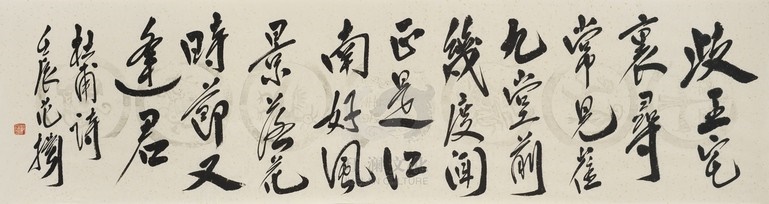 岐王宅
裏尋
常見崔
九堂前
幾度聞
正是江
南好風
景落花
時節又
逢君
杜甫詩
壬辰范撐